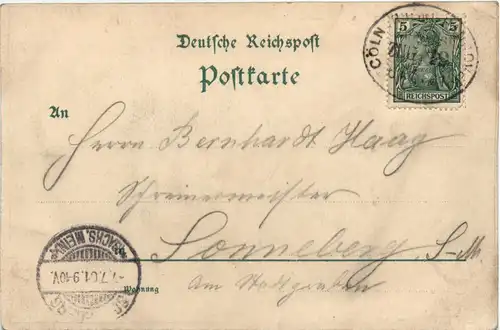 Deutsche Reichspost
Postkarte
5 5
REICHSPOST
CÖLN
An
Herrn Bernhardt Haag
Schreinermeister
Sonneberg S-M.
Am Stadtgraben
Wohnung
SACHS. MEIN.
7.7.01.9-10V.